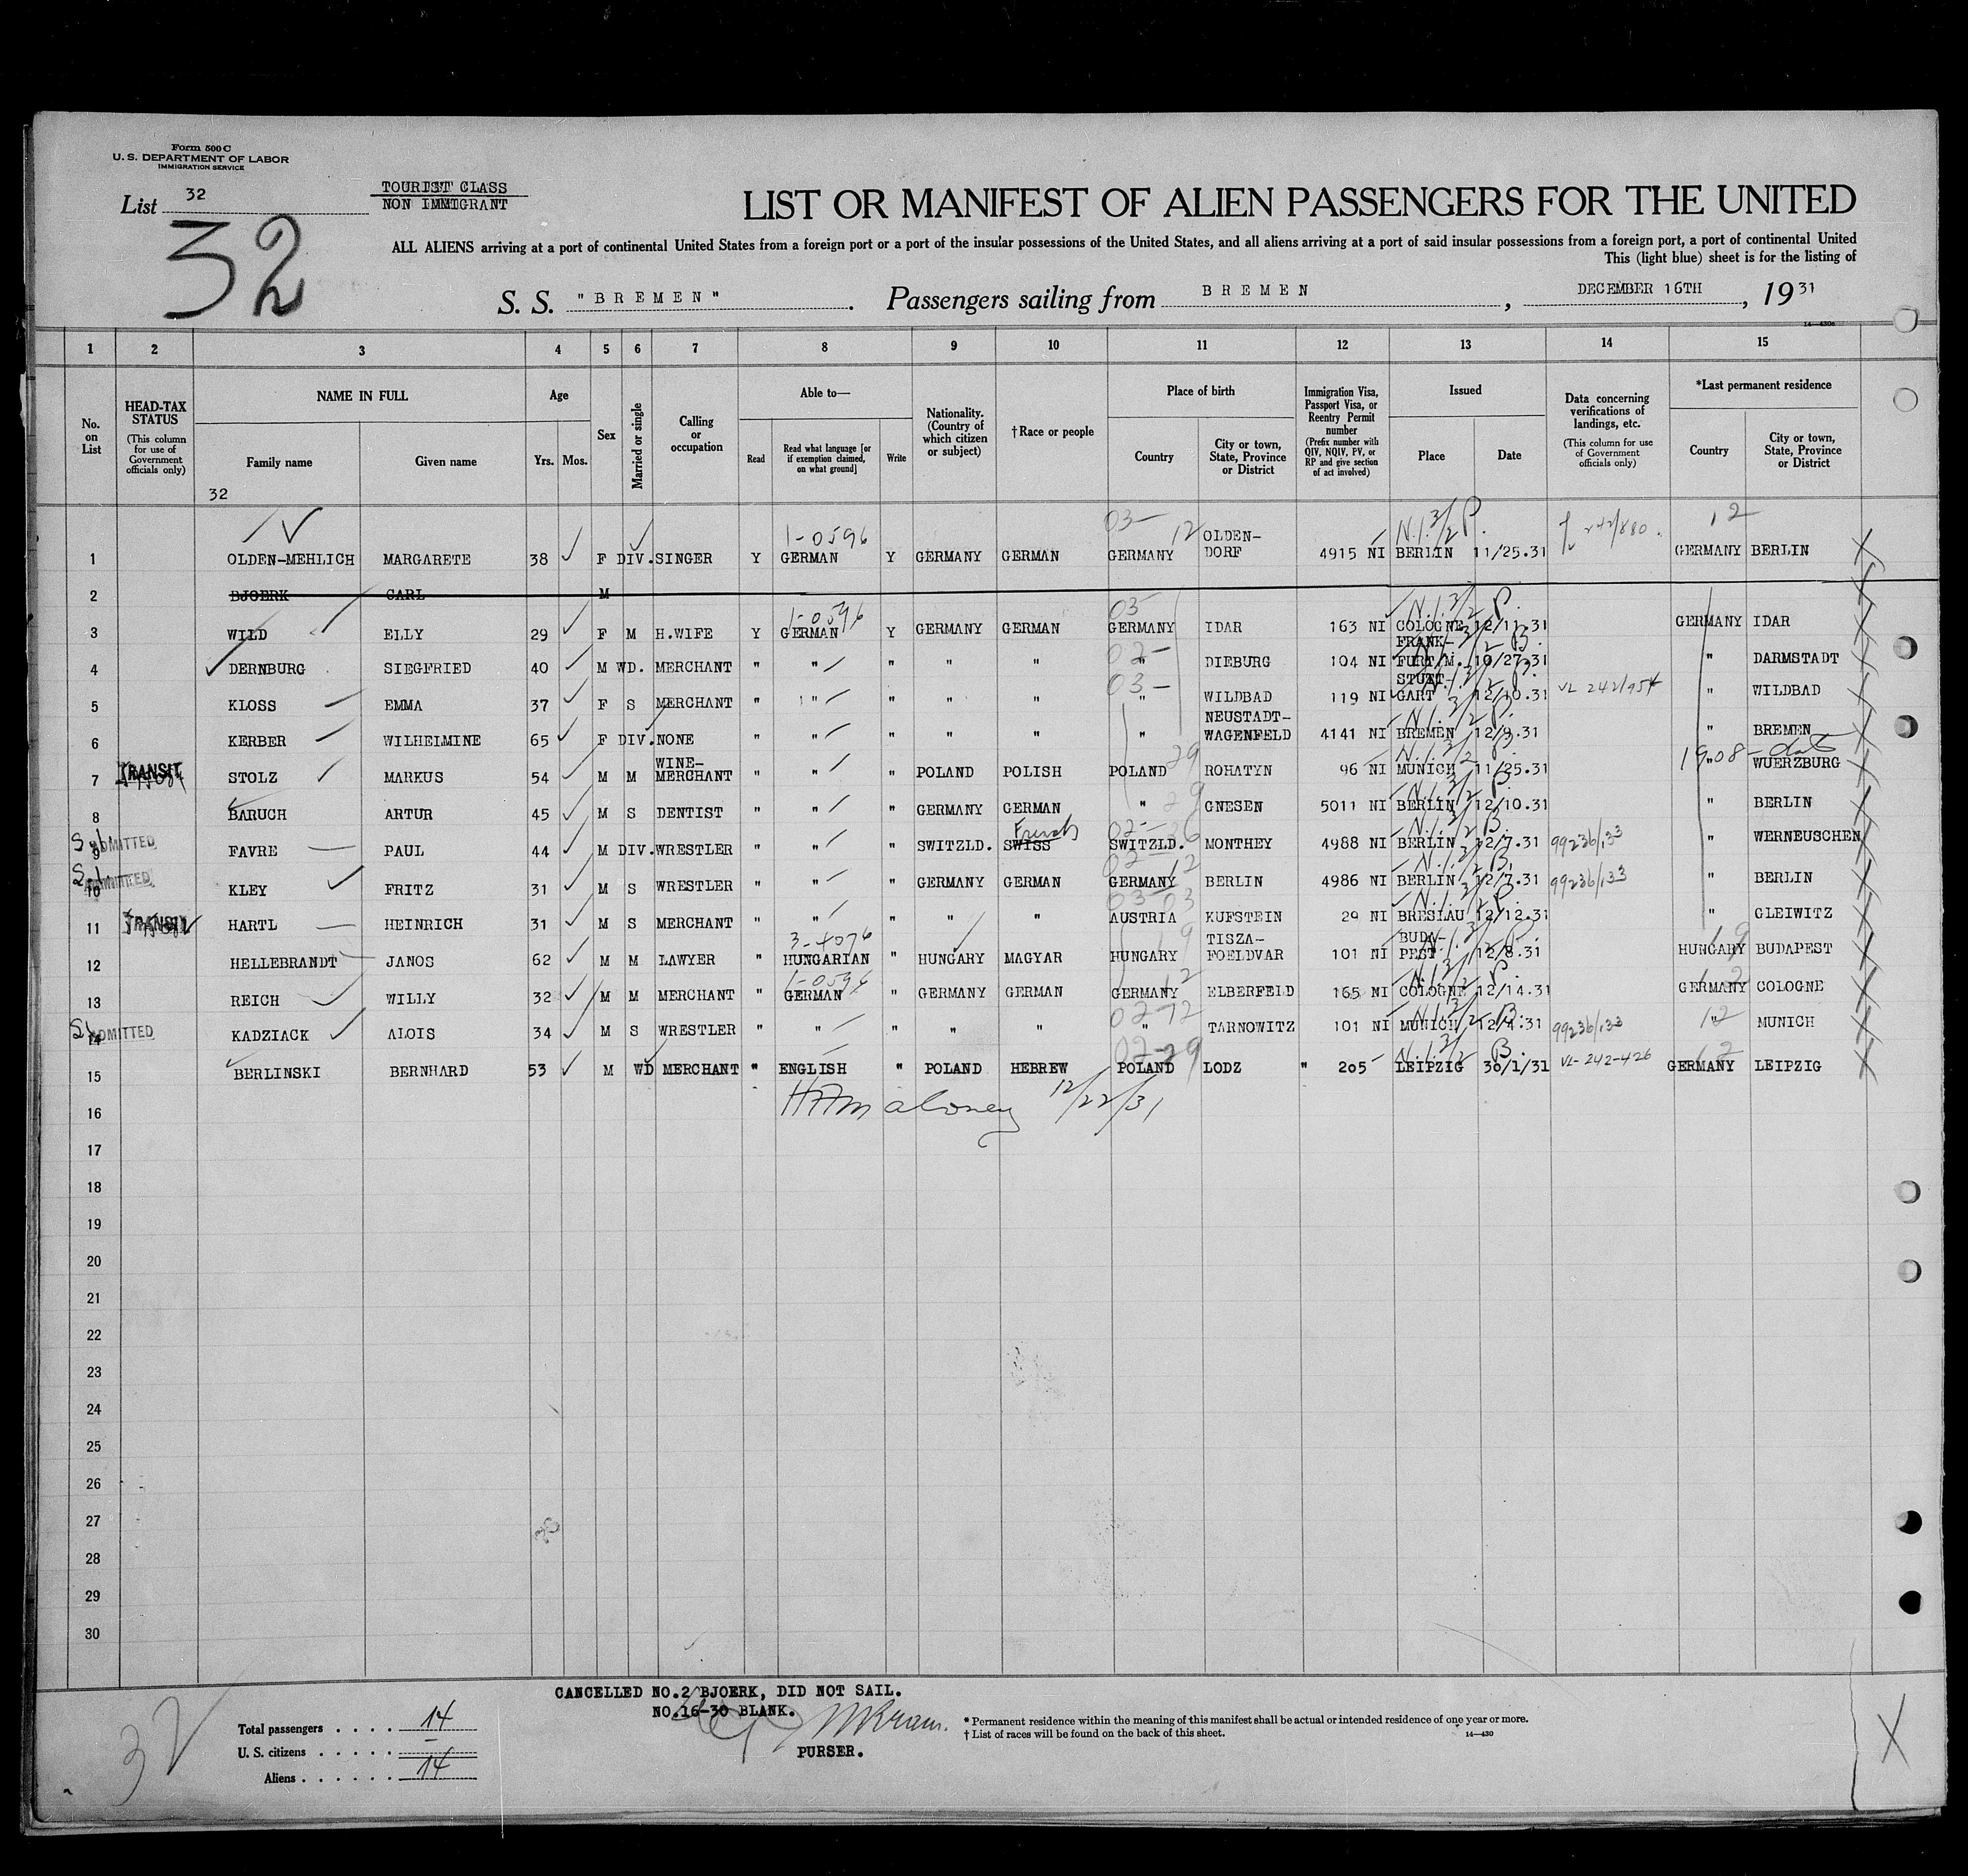 Form 500 C
U. S. DEPARTMENT OF LABOR
IMMIGRATION SERVICE
List 32
TOURIST CLASS
NON IMMIGRANT
32
LIST OR MANIFEST OF ALIEN PASSENGERS FOR THE UNITED
ALL ALIENS arriving at a port of continental United States from a foreign port or a port of the insular possessions of the United States, and all aliens arriving at a port of said insular possessions from a foreign port, a port of continental United
This (light blue) sheet is for the listing of
S. S. "BREMEN". Passengers sailing from BREMEN, DECEMBER 16TH, 1931
1 2 3 4 5 6 7 8 9 10 11 12 13 14 15
No. on List
HEAD-TAX STATUS (This column for use of Government officials only)
NAME IN FULL
Family name
Given name
Age
Yrs. Mos.
Sex
Married or single
Calling or occupation
Able to—
Read
Read what language [or if exemption claimed, on what ground]
Write
Nationality. (Country of which citizen or subject)
†Race or people
Place of birth
Country
City or town, State, Province or District
Immigration Visa, Passport Visa, or Reentry Permit number (Prefix number with QIV, NQIV, PV, or RP and give section of act involved)
Issued
Place
Date
Data concerning verifications of landings, etc. (This column for use of Government officials only)
*Last permanent residence
Country
City or town, State, Province or District
32
1 OLDEN-MEHLICH MARGARETE 38 F DIV. SINGER Y 1-0596 GERMAN Y GERMANY GERMAN 03- GERMANY 12 OLDEN-DORF 4915 NI BERLIN 11/25.31 12 GERMANY BERLIN
2 BJOERK CARL M
3 WILD ELLY 29 F M H.WIFE Y 1-0596 GERMAN Y GERMANY GERMAN 03 GERMANY IDAR 163 NI COLOGNE 12/11.31 GERMANY IDAR
4 DERNBURG SIEGFRIED 40 M WD. MERCHANT " " " " " 02- " DIEBURG 104 NI FRANK-FURT/M. 10/27.31 " DARMSTADT
5 KLOSS EMMA 37 F S MERCHANT " " " " " 03- " WILDBAD 119 NI STUTT-GART 12/10.31 " WILDBAD
6 KERBER WILHELMINE 65 F DIV. NONE " " " " " " NEUSTADT-WAGENFELD 4141 NI BREMEN 12/9.31 " BREMEN
7 TRANSIT STOLZ MARKUS 54 M M WINE-MERCHANT " " " POLAND POLISH POLAND 29 ROHATYN 96 NI MUNICH 11/25.31 " WUERZBURG
8 BARUCH ARTUR 45 M S DENTIST " " " GERMANY GERMAN " 29 GNESEN 5011 NI BERLIN 12/10.31 " BERLIN
9 ADMITTED FAVRE PAUL 44 M DIV. WRESTLER " " " SWITZLD. SWISS French SWITZLD. MONTHEY 4988 NI BERLIN 12/7.31 99236/133 " WERNEUSCHEN
10 ADMITTED KLEY FRITZ 31 M S WRESTLER " " " GERMANY GERMAN GERMANY 12 BERLIN 4986 NI BERLIN 12/7.31 99236/133 " BERLIN
11 TRANSIT HARTL HEINRICH 31 M S MERCHANT " " " " " AUSTRIA KUFSTEIN 29 NI BRESLAU 12/12.31 " GLEIWITZ
12 HELLEBRANDT JANOS 62 M M LAWYER " 3-4076 HUNGARIAN " HUNGARY MAGYAR HUNGARY 19 TISZA-FOELDVAR 101 NI BUDA-PEST 12/8.31 HUNGARY BUDAPEST
13 REICH WILLY 32 M M MERCHANT " 1-0596 GERMAN " GERMANY GERMAN GERMANY 12 ELBERFELD 165 NI COLOGNE 12/14.31 GERMANY COLOGNE
14 ADMITTED KADZIACK ALOIS 34 M S WRESTLER " " " " " 02-12 " TARNOWITZ 101 NI MUNICH 12/4.31 99236/133 12 " MUNICH
15 BERLINSKI BERNHARD 53 M WD MERCHANT " ENGLISH " POLAND HEBREW 02-29 POLAND LODZ " 205 LEIPZIG 30/1/31 VL-242-426 12 GERMANY LEIPZIG
16 Maloney 12/22/31
17
18
19
20
21
22
23
24
25
26
27
28
29
30
CANCELLED NO.2 BJOERK, DID NOT SAIL.
NO.16-30 BLANK.
PURSER.
32
Total passengers . . . . 14
U. S. citizens . . . . . —
Aliens . . . . . . 14
* Permanent residence within the meaning of this manifest shall be actual or intended residence of one year or more.
† List of races will be found on the back of this sheet.
14—430